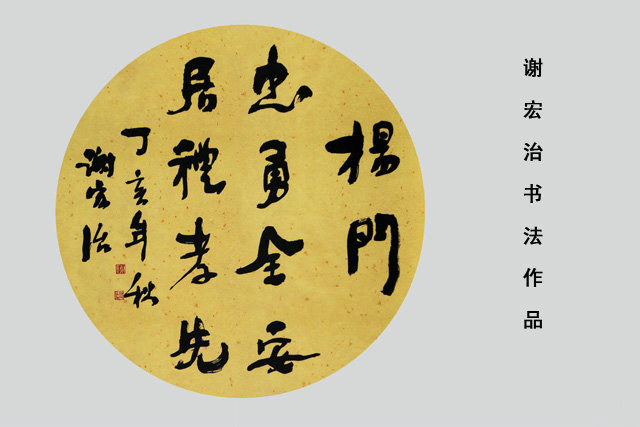 谢宏治书法作品
楊門
忠勇全安
居禮孝先
丁亥年秋
謝宏治